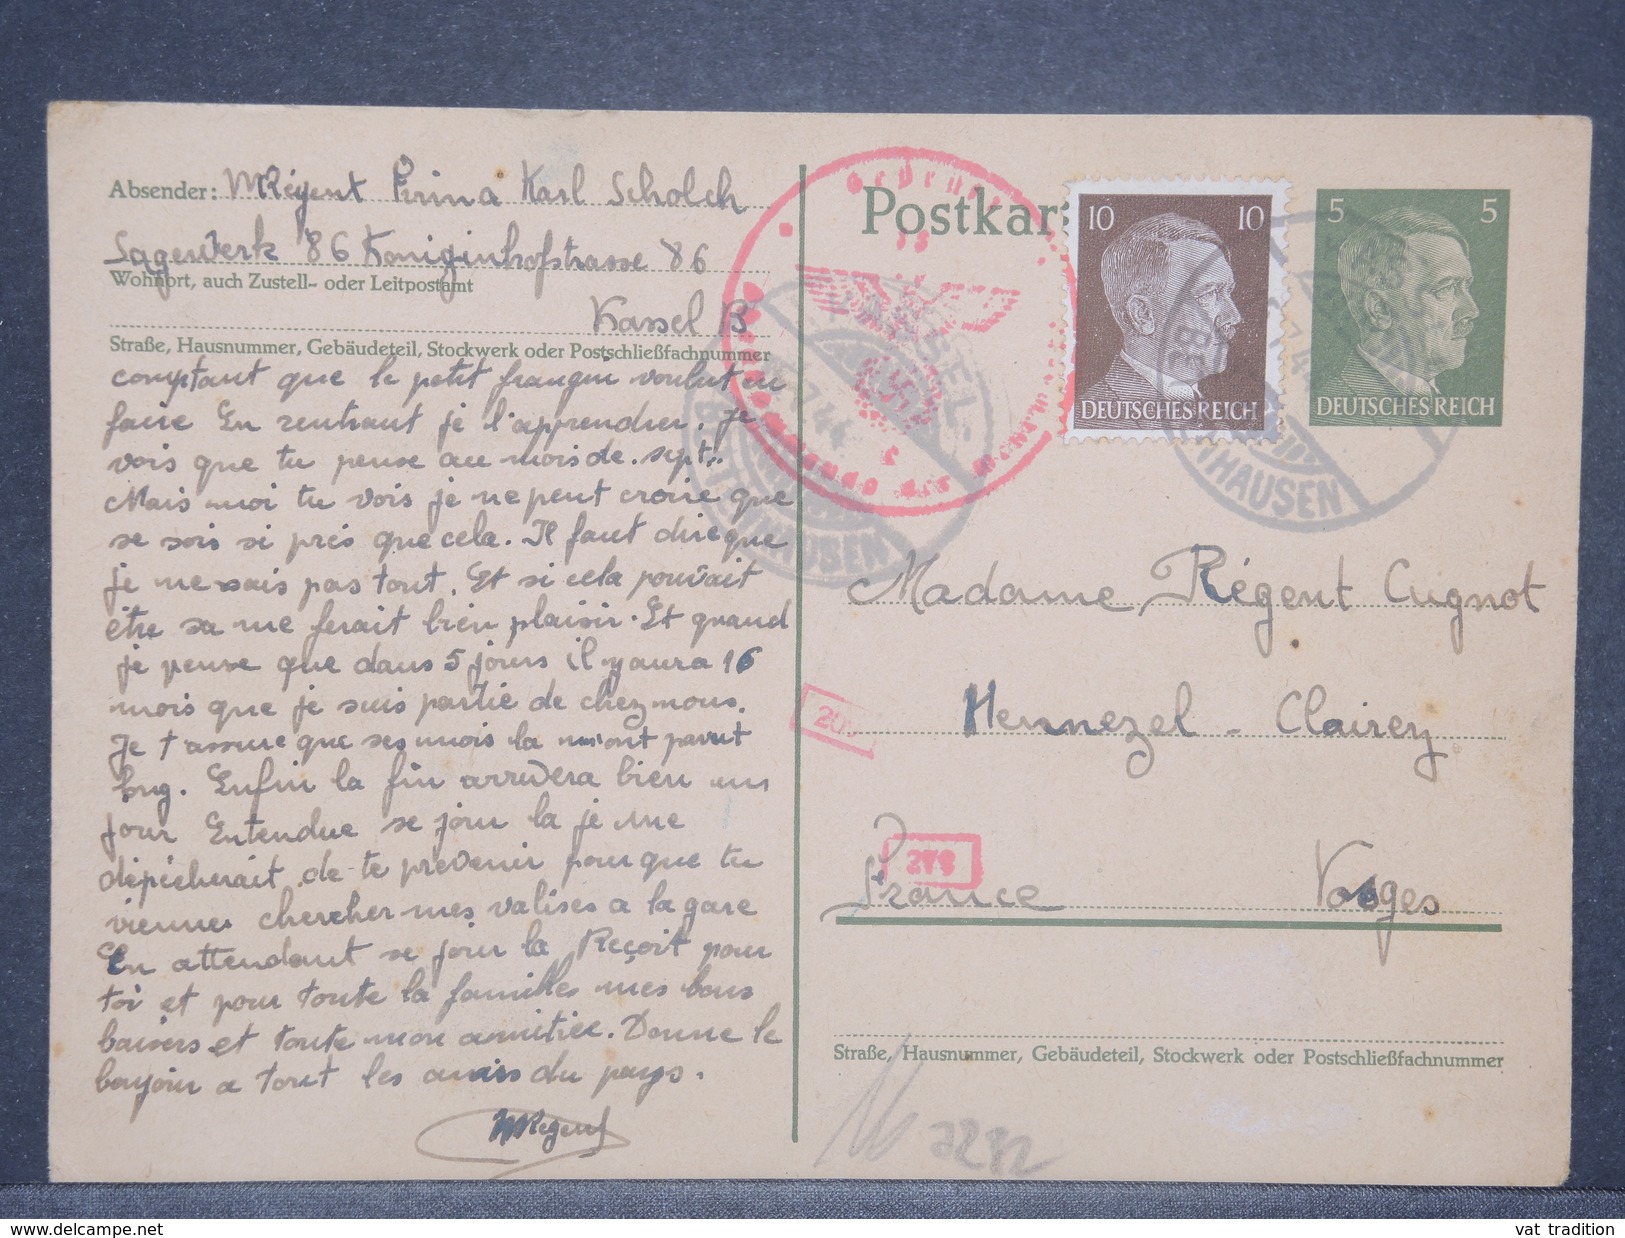 Absender: MRégent Firma Karl Scholch
Sägewerk 86 Königinhofstrasse 86
Wohnort, auch Zustell- oder Leitpostamt
Kassel B
Straße, Hausnummer, Gebäudeteil, Stockwerk oder Postschließfachnummer
comptant que le petit frangin voulut en
faire En rentrant je l'apprendrer. Je
vois que tu pense au mois de. sept.
Mais moi tu vois je ne peut croire que
se sois si près que cela. Il faut dire que
je ne sais pas tout. Et si cela pouvait
être sa me ferait bien plaisir. Et quand
je pense que dans 5 jours il y aura 16
mois que je suis partie de chez nous.
Je t'assure que ses mois la m'ont parut
long. Enfin la fin arrivera bien un
jour Entendue se jour la je me
dépécherait de te prevenir pour que tu
viennes chercher mes valises a la gare
En attendant se jour la Reçoit pour
toi et pour toute la familles mes bons
baisers et toute mon amitiée. Donne le
bonjour a tout les amis du pays.
MRégent
Postkar
10 10
DEUTSCHES REICH
5 5
DEUTSCHES REICH
KASSEL-
BETTENHAUSEN
Madame Régent Cugnot
Hennezel - Clairey
279
France Vosges
Straße, Hausnummer, Gebäudeteil, Stockwerk oder Postschließfachnummer
delcampe.net
vat tradition